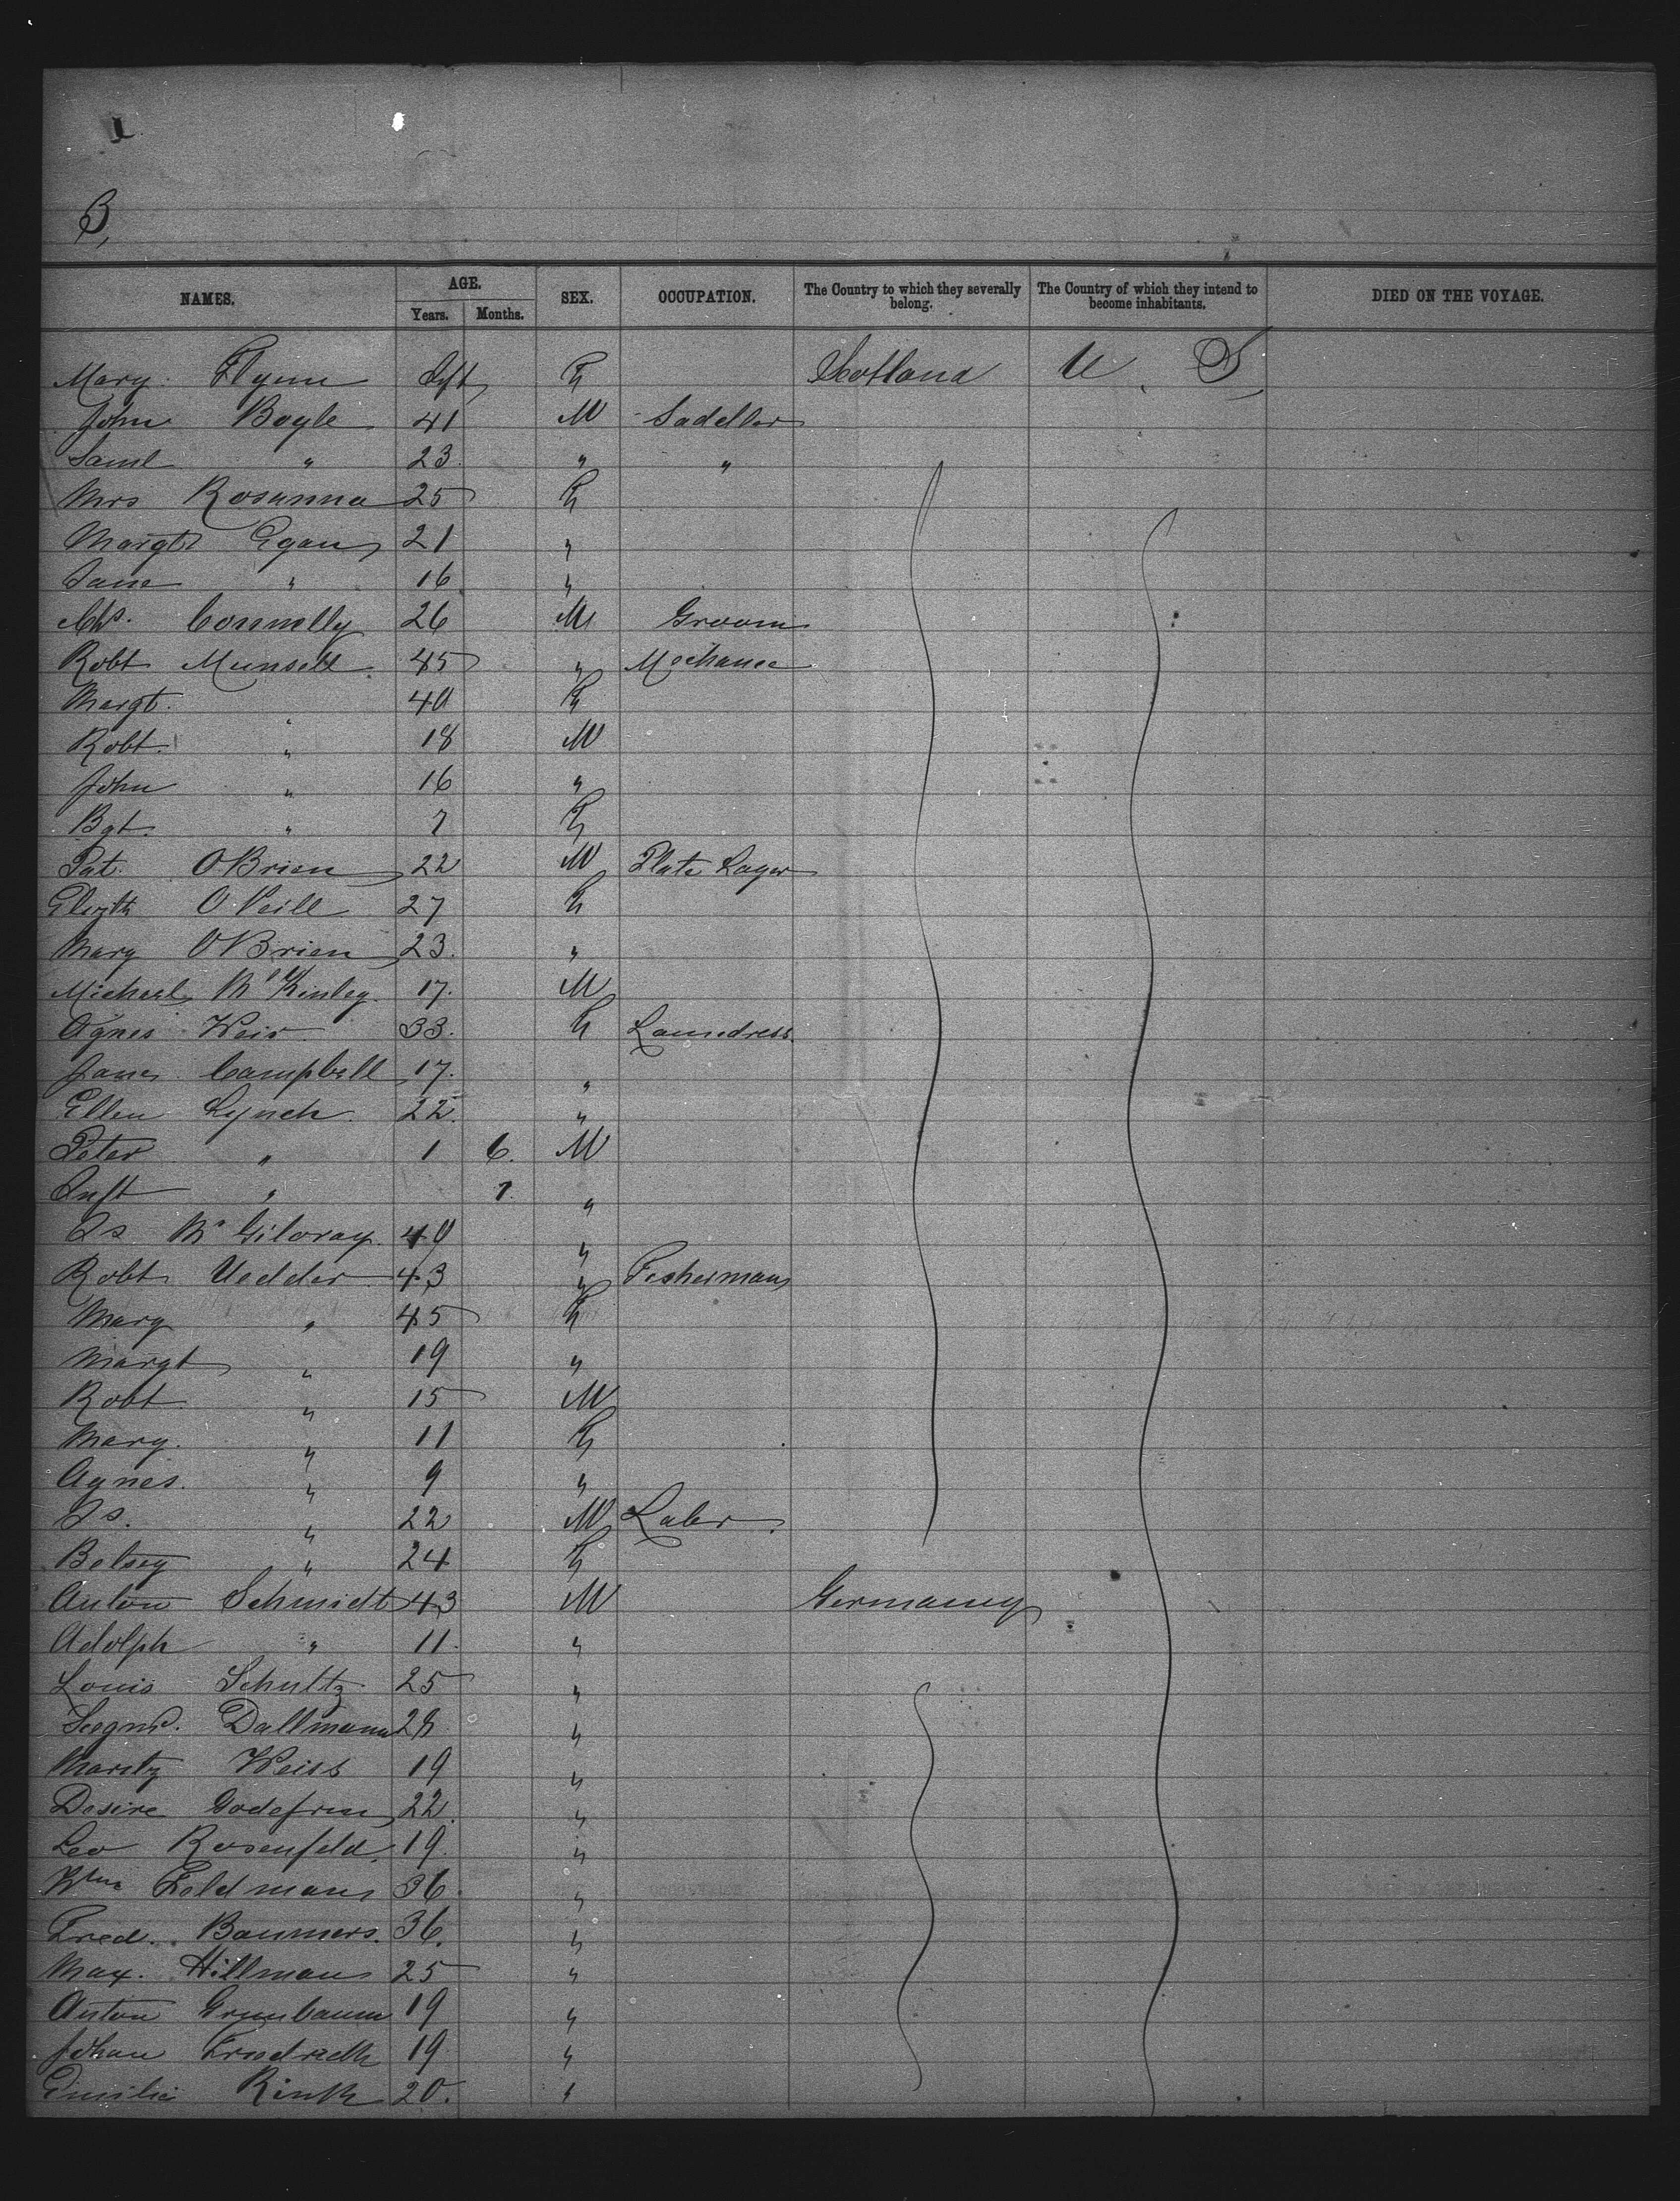 B,
NAMES. AGE. SEX. OCCUPATION. The Country to which they severally belong. The Country of which they intend to become inhabitants. DIED ON THE VOYAGE.
Years. Months.
Mary Flynn Inft F Scotland U. S,
John Boyle 41 M Sadeller
Saml " 23 " "
Mrs Rosanna 25 F
Margt Egan 21 "
Jane " 16 "
Connolly 26 M Groom
Robt Munsell 45 " Mechanic
Margt. " 40 F
Robt. " 18 M
John " 16 "
Bgt. " 7 F
Pat. OBrien 22 M Plate Layer
Elizth O'Neill 27 F
Mary OBrien 23. "
Michael McKinley. 17. M
Agnes Weir 33. F Laundress.
Jane Campbell 17. "
Ellen Lynch 22. "
Peter " 1 6. M
Inft " 7. "
Js Mc Gilvray. 40 "
Robt Vedder 43 " Fisherman
Mary " 45 F
Margt " 19 "
Robt " 15 M
Mary. " 11 F
Agnes. " 9 "
Js. " 22 M Labr.
Betsey " 24 F
Anton Schmidt 43 M Germany
Adolph " 11. "
Louis Schultz 25 "
Dallmann 28 "
Moritz Weiss 19 "
Desire Godefrin 22. "
Leo Rosenfeld. 19. "
Wm Feldman 36. "
Fred. Baumers. 36. "
Max. Hillman 25 "
Anton Grunbaum 19 "
Johan Friedrich 19 "
Emilie Rink 20. "